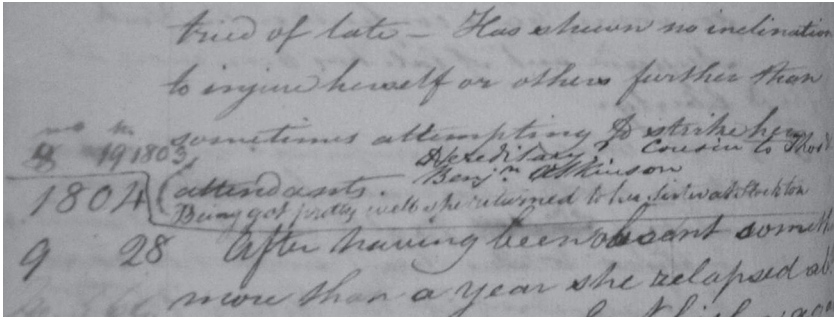 tried of late – Has shewn no inclination
to injure herself or others further than
sometimes attempting to strike her
8 19 1803
Hereditary Cousin to Tho
attendants. Benjn Atkinson
1804
Being got pretty well she returned to her sister at Stockton
9 28 After having been absent someth
more than a year she relapsed